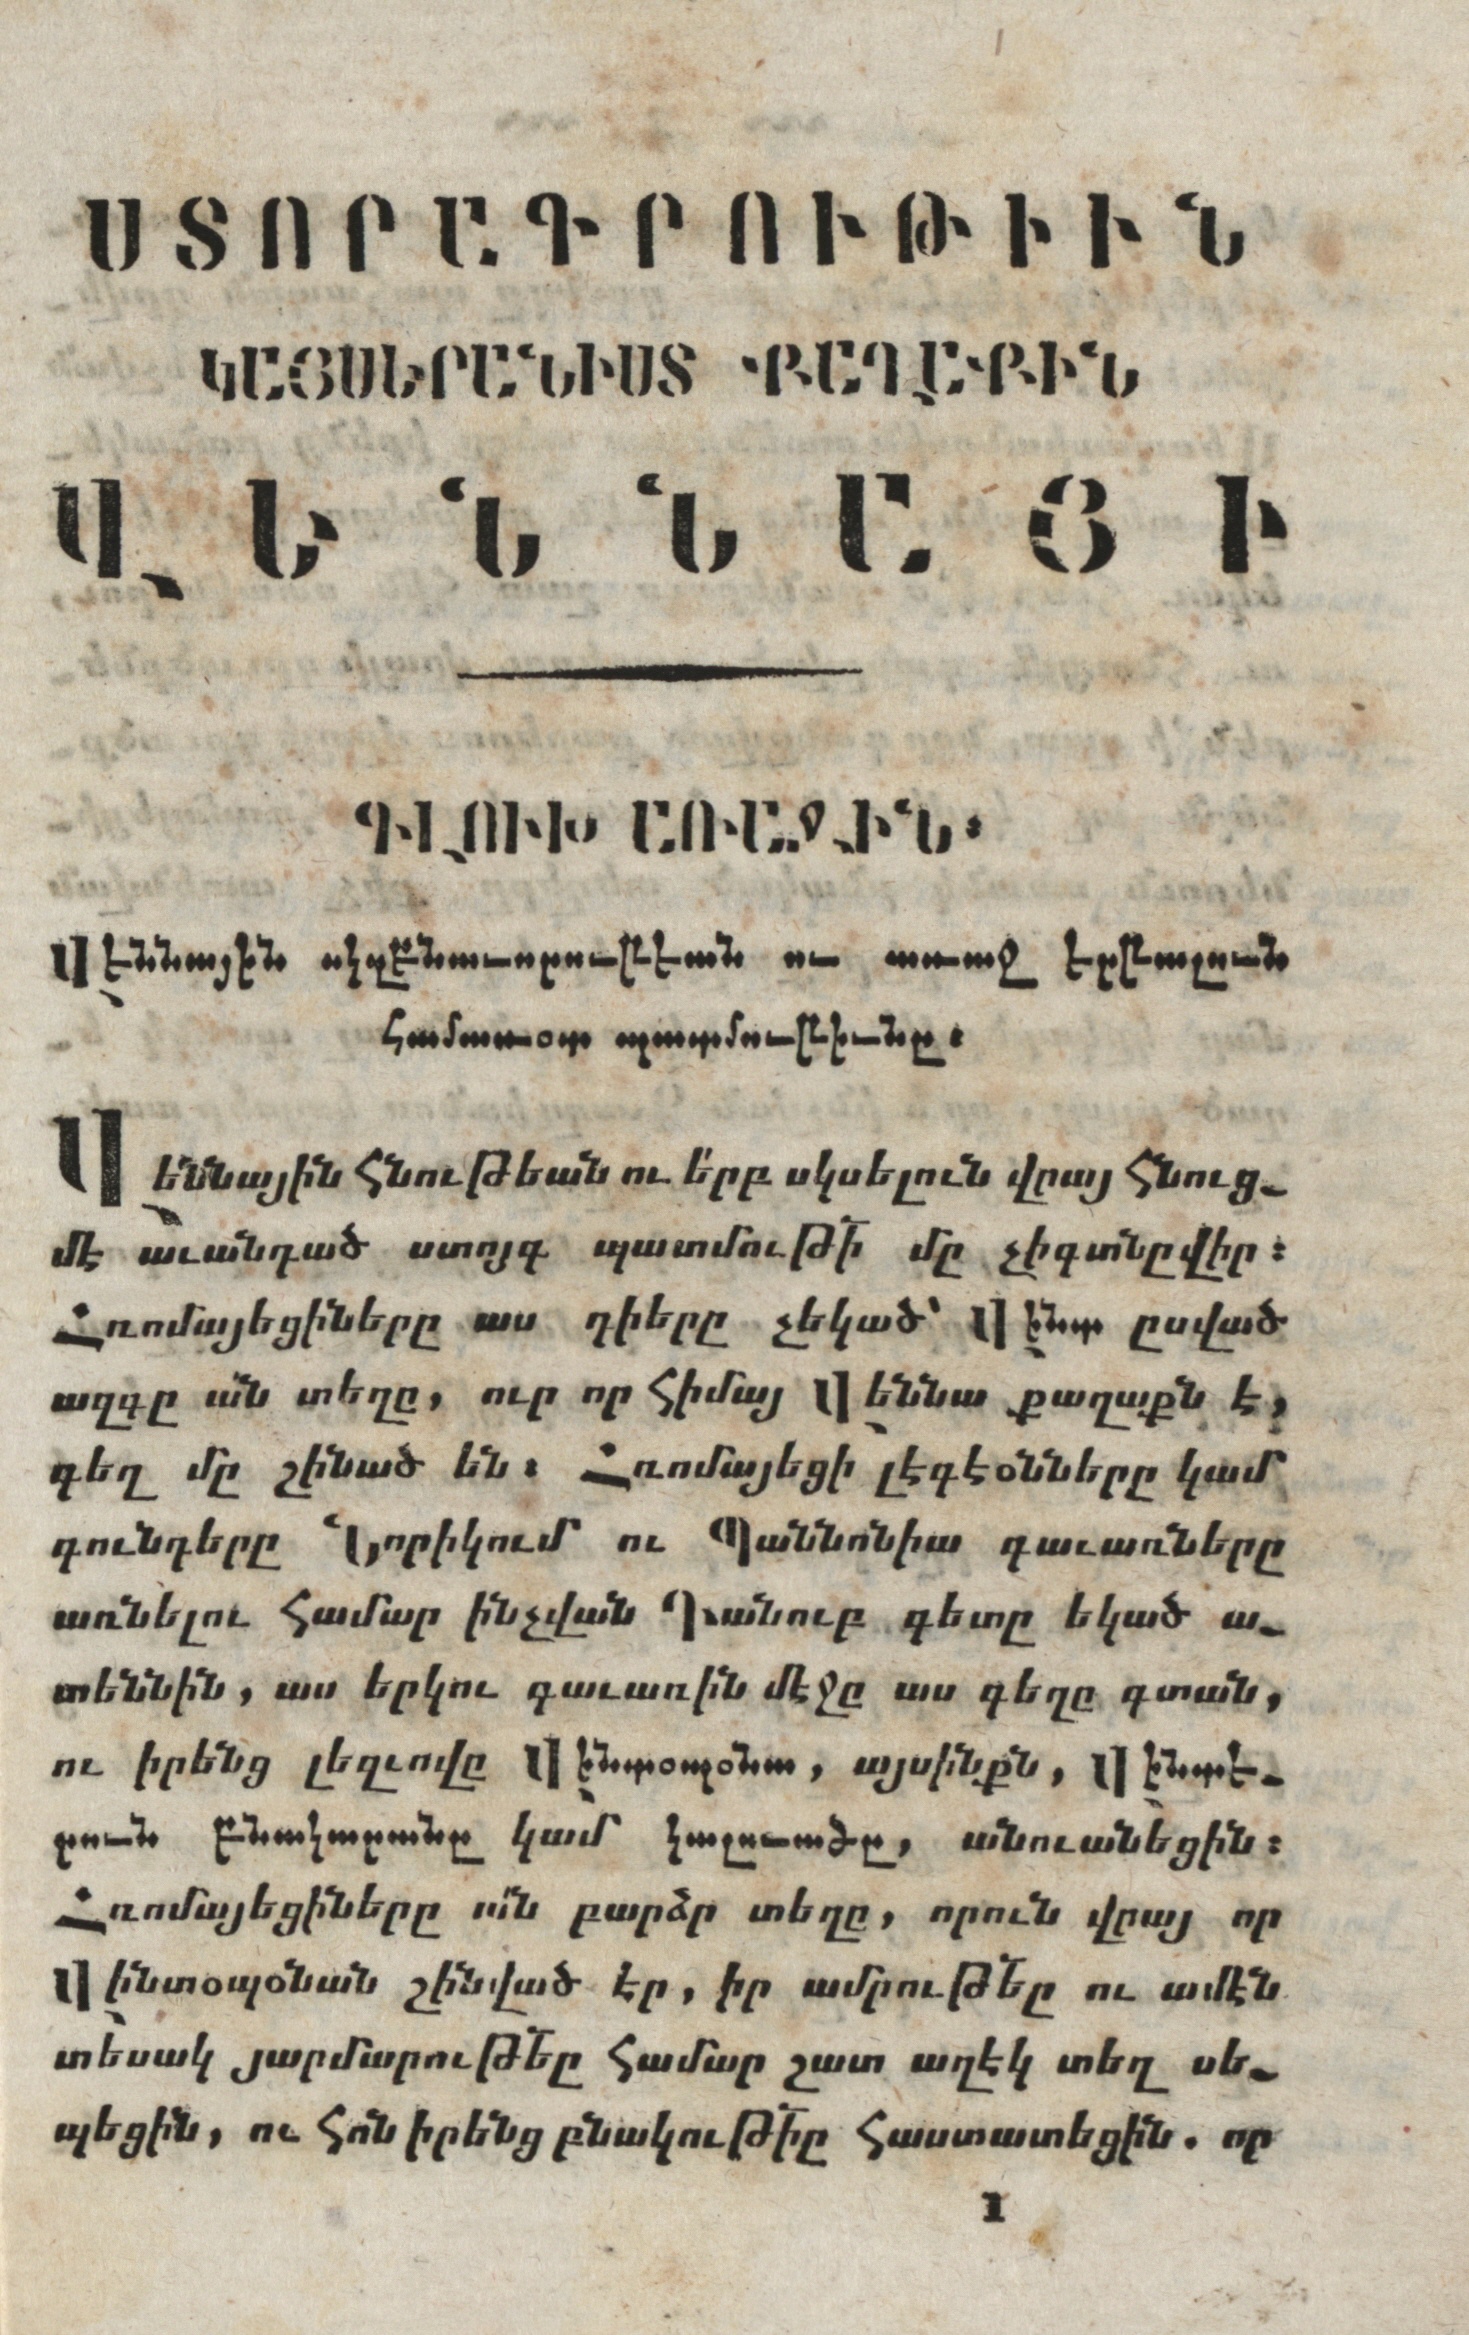 ՍՏՈՐԱԳՐՈՒԹԻՒՆ
ԿԱՅՍԵՐԱՆԻՍՏ ՔԱՂԱՔԻՆ
ՎԵՆՆԱՅԻ
ԳԼՈՒԽ ԱՌԱՋԻՆ։
Վէննային սկզբնաւորութէան ու առաջ էրթալուն
համառօտ պատմութիւնը։
Վեննային հնութեան ու ե՛րբ սկսելուն վրայ հնուց֊
մէ աւանդած ստոյգ պատմութի մը չիգտնըվիր։
Հռոմայեցիները աս դիերը չեկած՝ Վինտ ըսված
ազգը ան տեղը, ուր որ հիմայ Վեննա քաղաքն է,
գեղ մը շինած են։ Հռոմայեցի լէգէօնները կամ
գունդերը Նորիկում ու Պաննոնիա գաւառները
առնելու համար ինչվան Դանուբ գետը եկած ա֊
տեննին, աս երկու գաւառին մէջը աս գեղը գտան,
ու իրենց լեզւովը Վինտօպօնա, այսինքն, Վինտէ֊
րուն բնակարանը կամ կալուածը, անուանեցին։
Հռոմայեցիները ան բարձր տեղը, որուն վրայ որ
Վինտօպօնան շինված էր, իր ամրութեը ու ամէն
տեսակ յարմարութեը համար շատ աղէկ տեղ սե֊
պեցին, ու հոն իրենց բնակութիը հաստատեցին. որ
1